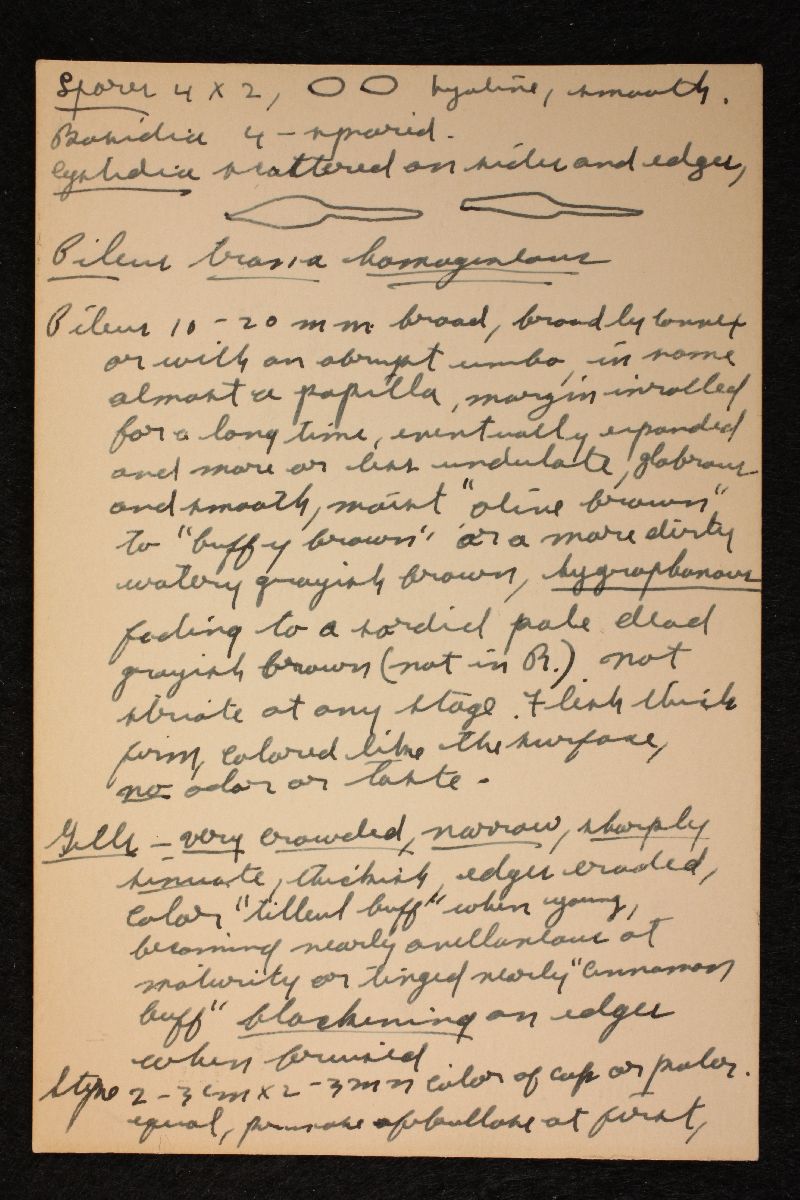 Spores 4 x 2, hyaline, smooth.
Basidia 4-spored.
Cystidia scattered on sides and edges,
Pileus trama homogeneous
Pileus 10-20 mm broad, broadly convex
or with an abrupt umbo, in some
almost a papilla, margin inrolled
for a long time, eventually expanded
and more or less undulate, glabrous
and smooth, moist "olive brown"
to "buffy brown" or a more dirty
watery grayish brown, hygrophanous
fading to a sordid pale dead
grayish brown (not in R.) not
striate at any stage. Flesh thick
firm, colored like the surface,
no odor or taste -
Gills - very crowded, narrow, sharply
sinuate, thickish, edges eroded,
color "tilleul buff" when young,
becoming nearly avellaneous at
maturity or tinged nearly "cinnamon
buff" blackening on edges
when bruised
Stipe 2-3 cm x 2-3 mm color of cap or paler.
equal, pruinose at first,